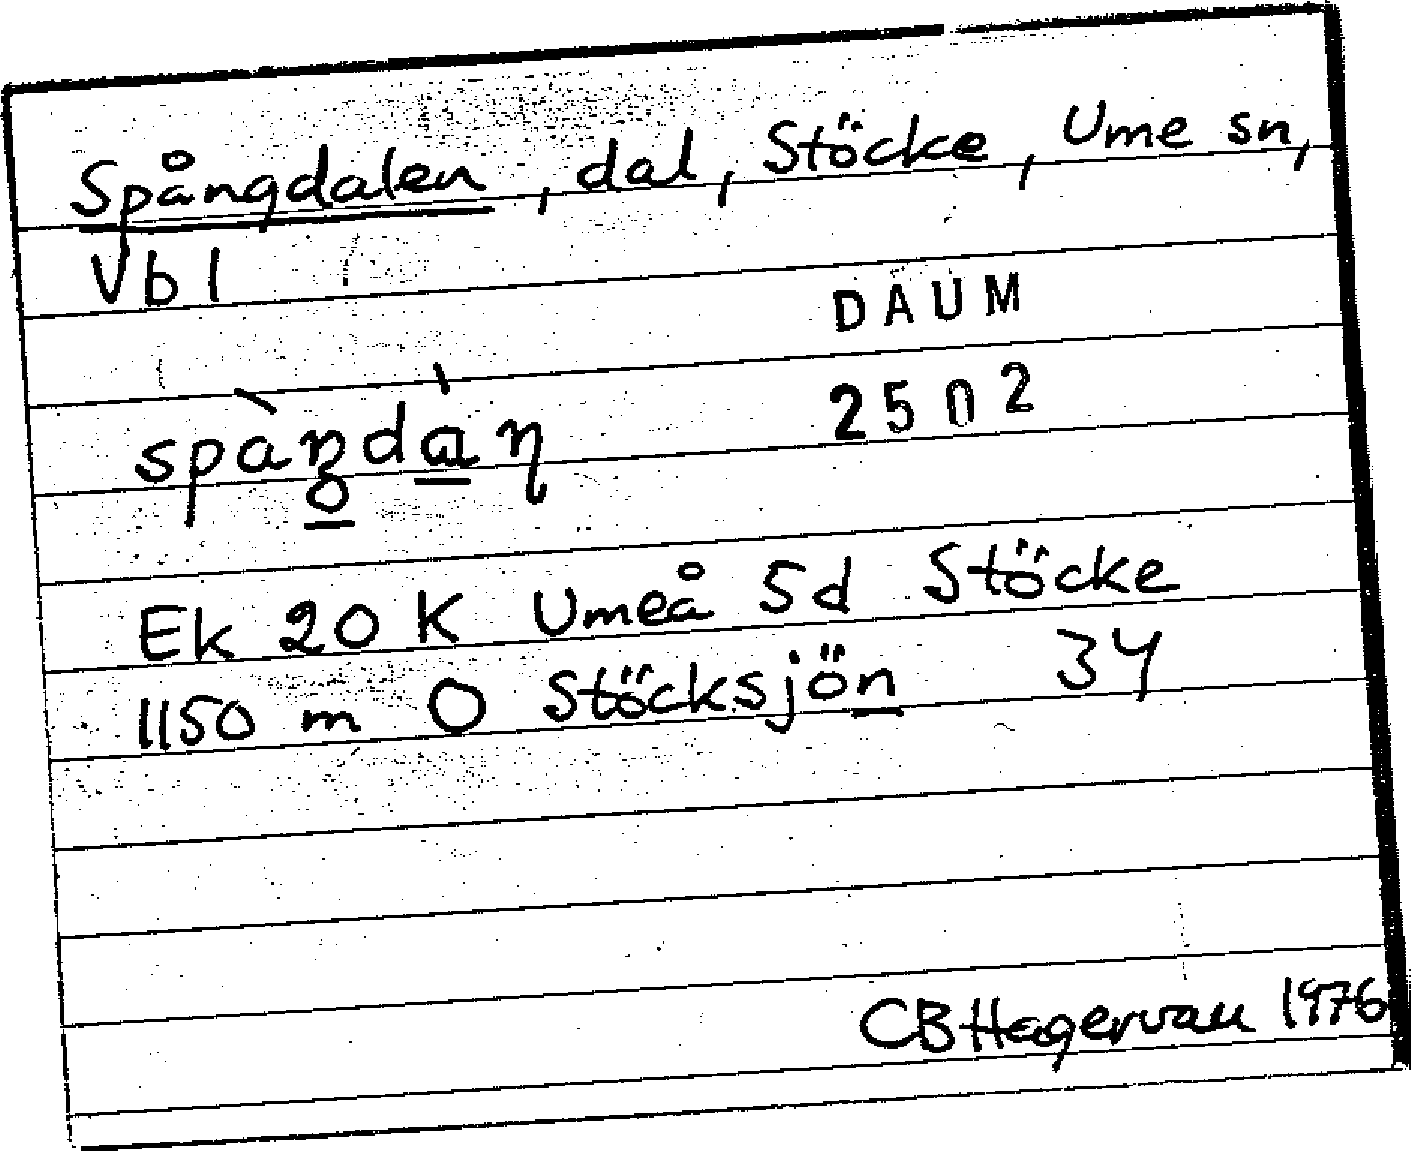 Spångdalen, dal, Stöcke, Ume sn,
Vbl
DAUM
2502
Ek 20 K Umeå 5d Stöcke
1150 m O Stöcksjön 34
CBHagervall 1976